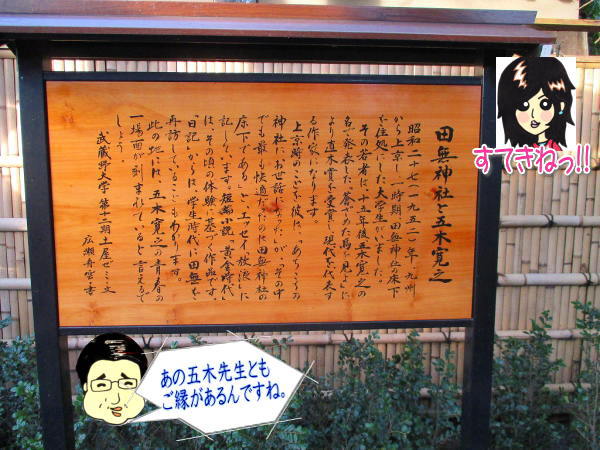 田無神社と五木寛之
昭和二十七(一九五二)年、九州
から上京し、一時期田無神社の床下
を住処にした大学生がいました。
その若者は、十五年後五木寛之の
名で発表した「蒼ざめた馬を見よ」に
より直木賞を受賞し、現代を代表す
る作家になります。
上京時のことを彼は、「あちこちの
神社にお世話になったが、その中
でも最も快適だったのは田無神社の
床下である」と、エッセイ放浪に
記しています。短篇小説「黄金時代」
は、その頃の体験に基づく作品です。
「日記」からは、学生時代に田無を
再訪していることもわかります。
此の地には、五木寛之の青春の
一場面が刻まれていると言えるで
しょう。
武蔵野大学 第十二期土屋ゼミ文
広瀬舟雲書
すてきねっ!!
あの五木先生とも
ご縁があるんですね。